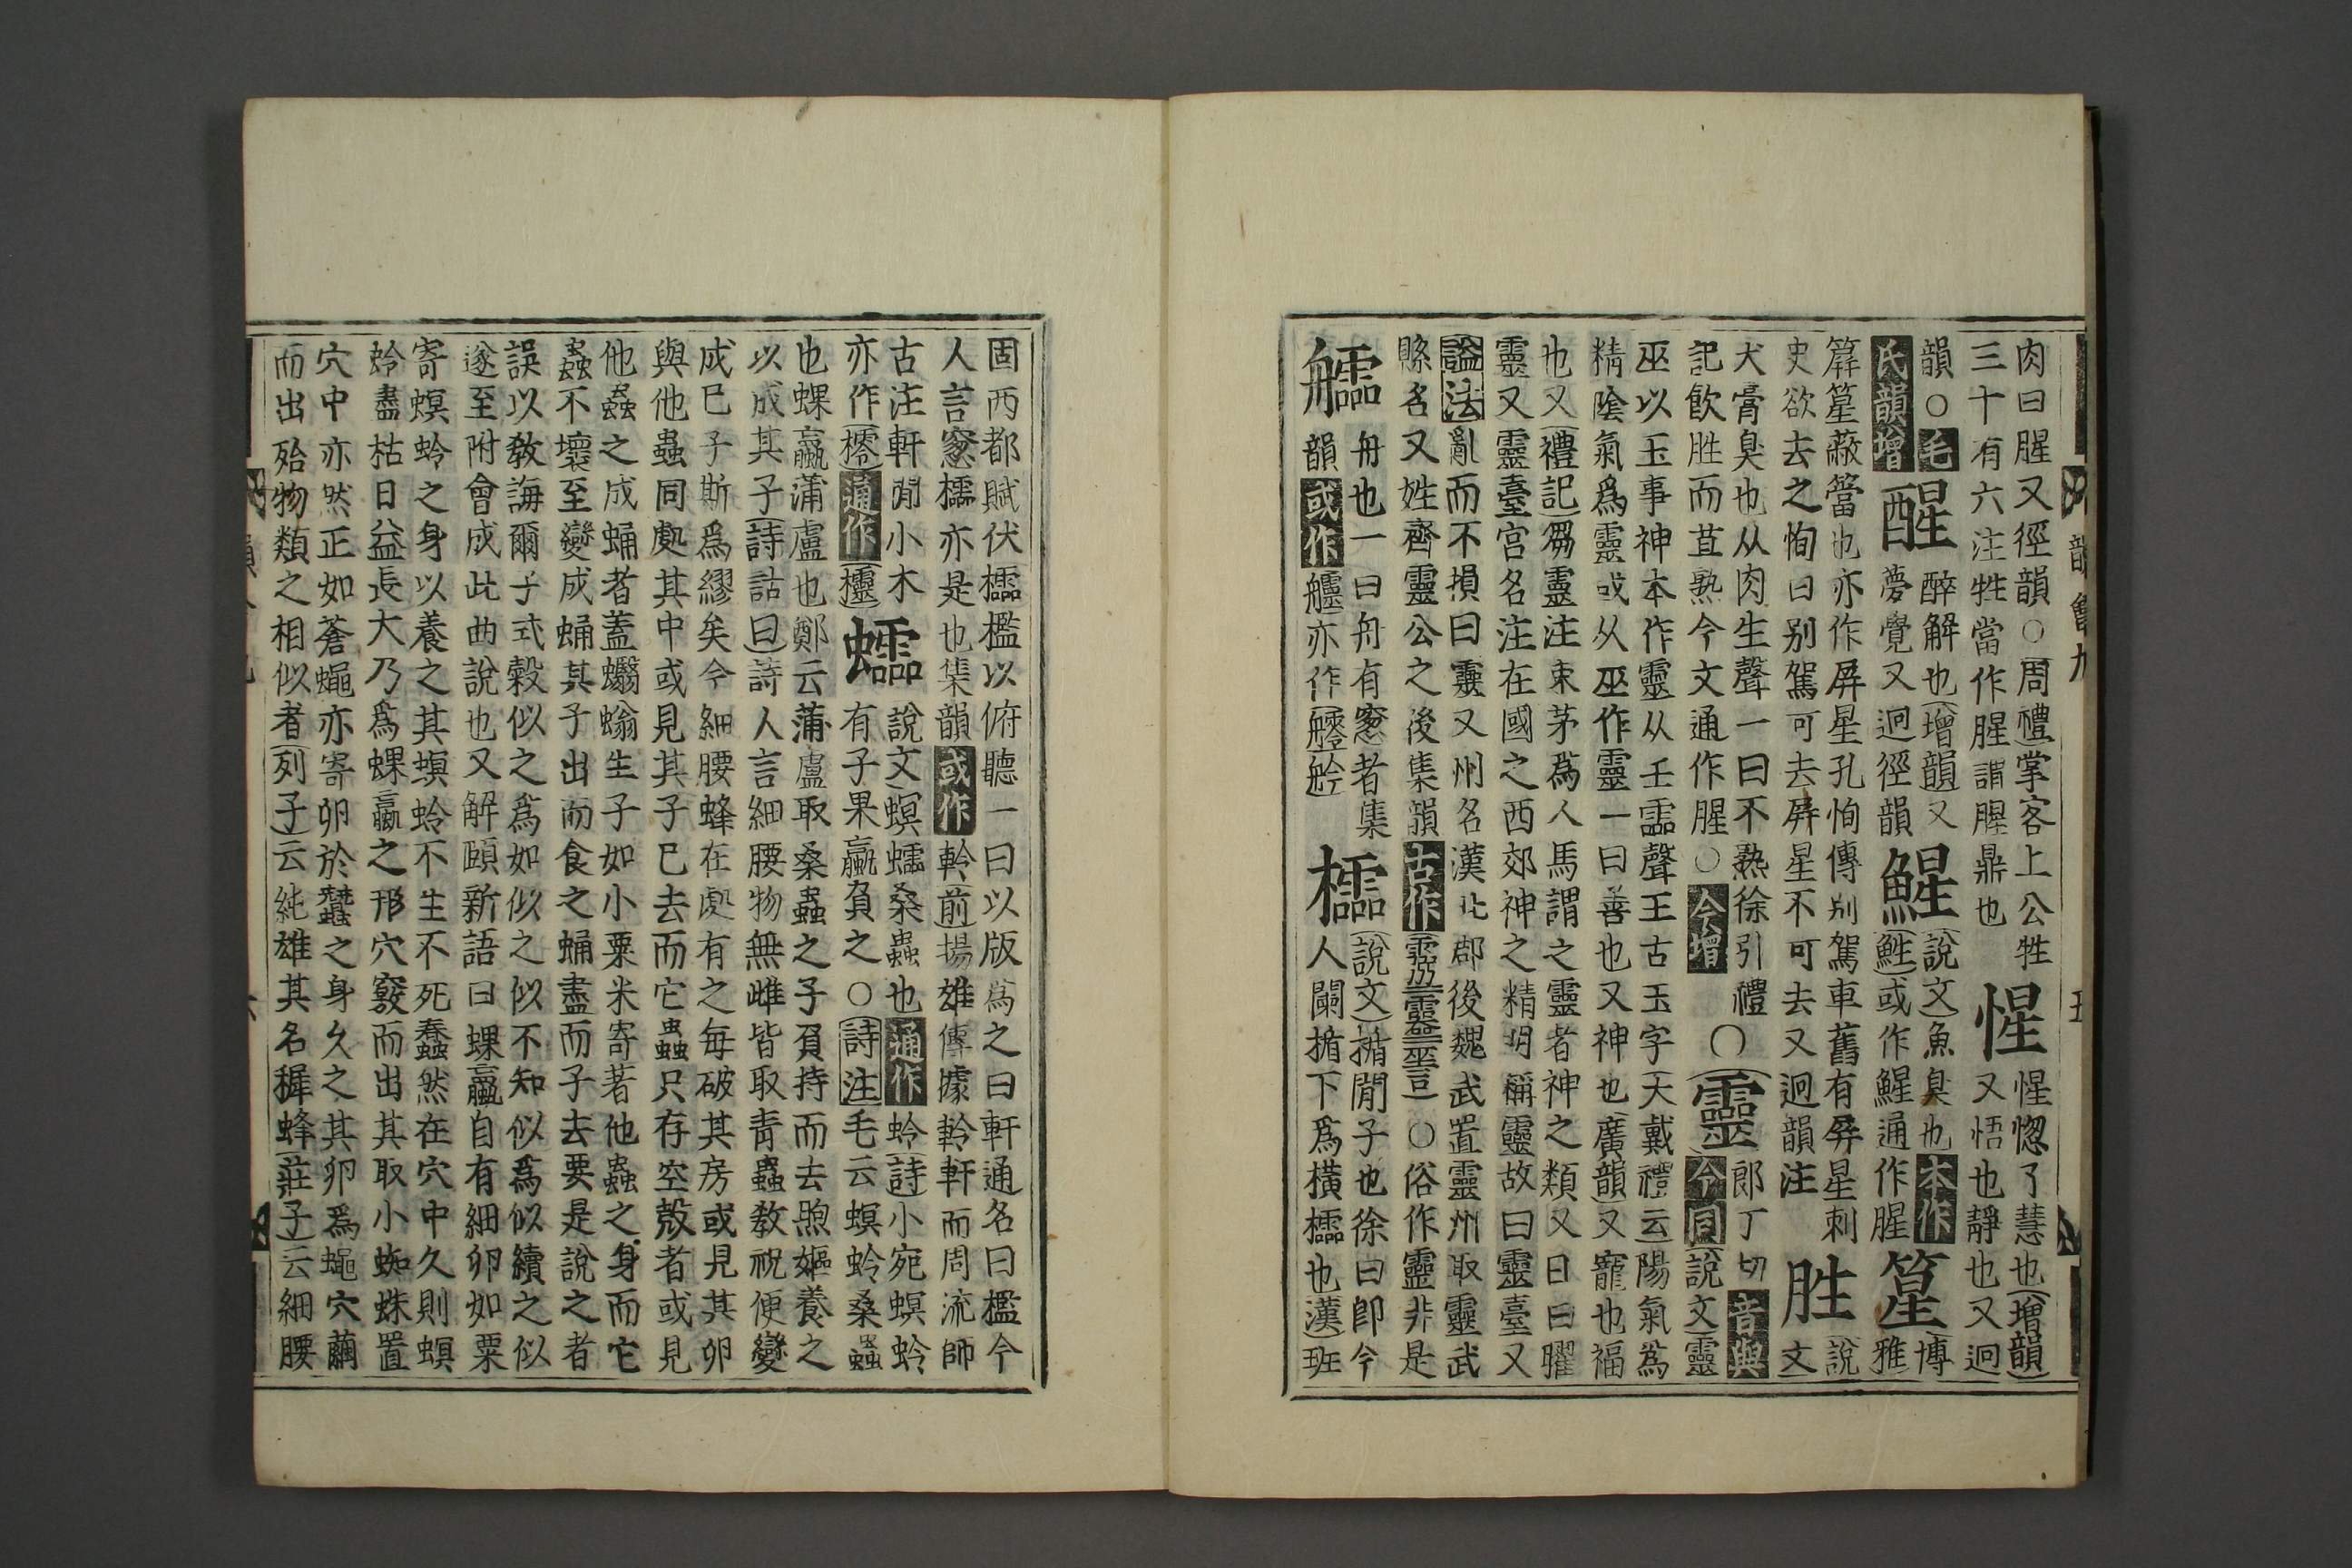 肉曰腥又徑韻○周禮掌客上公牲
三十有六注牲當作腥謂腥鼎也
惺
惺惚了慧也增韻
又悟也靜也又迥
韻○毛
氏韻增
醒
醉解也增韻又
夢覺又迥徑韻
鯹
說文魚臭也本作
鮏或作鯹通作腥
篂
博
雅
箳篂蔽簹也亦作屏星孔恂傳别駕車舊有屏星刺
史欲去之恂曰别駕可去屏星不可去又迥韻注
胜
說
文
犬膏臭也从肉生聲一曰不熟徐引禮
記飲胜而苴熟今文通作腥○今增
○靈
郎丁切音與
今同說文靈
巫以玉事神本作靈从王霝聲王古玉字大戴禮云陽氣爲
精陰氣爲靈或从巫作靈一曰善也又神也廣韻又寵也福
也又禮記芻靈注束茅爲人馬謂之靈者神之類又曰日曜
靈又靈臺宮名注在國之西郊神之精明稱靈故曰靈臺又
謚法亂而不損曰靈又州名漢北郡後魏武置靈州取靈武
縣名又姓齊靈公之後集韻古作○俗作靈非是
艫
舟也一曰舟有窻者集
韻或作艫亦作艫舲
櫺
說文楯閒子也徐曰卽今
人闌楯下爲橫櫺也漢班
固西都賦伏櫺檻以俯聽一曰以版爲之曰軒通名曰檻今
人言窻櫺亦是也集韻或作軨前揚雄傳據軨軒而周流師
古注軒閒小木
亦作櫺通作櫺
蠕
說文螟蠕桑蟲也通作蛉詩小宛螟蛉
有子果蠃負之○詩注毛云螟蛉桑蟲
也蜾蠃蒲盧也鄭云蒲盧取桑蟲之子負持而去煦嫗養之
以成其子詩詁曰詩人言細腰物無雌皆取青蟲教祝便變
成巳子斯爲繆矣今細腰蜂在處有之每破其房或見其卵
與他蟲同處其中或見其子巳去而它蟲只存空殼者或見
他蟲之成蛹者蓋蠮螉生子如小粟米寄著他蟲之身而它
蟲不壞至變成蛹其子出而食之蛹盡而子去要是說之者
誤以教誨爾子式穀似之爲如似之似不知似爲似續之似
遂至附會成此曲說也又解頤新語曰蜾蠃自有細卵如粟
寄螟蛉之身以養之其螟蛉不生不死蠢然在穴中久則螟
蛉盡枯日益長大乃爲蜾蠃之形穴竅而出其取小蜘蛛置
穴中亦然正如蒼蠅亦寄卵於蠶之身久之其卵爲蠅穴繭
而出殆物類之相似者列子云純雄其名穉蜂莊子云細腰